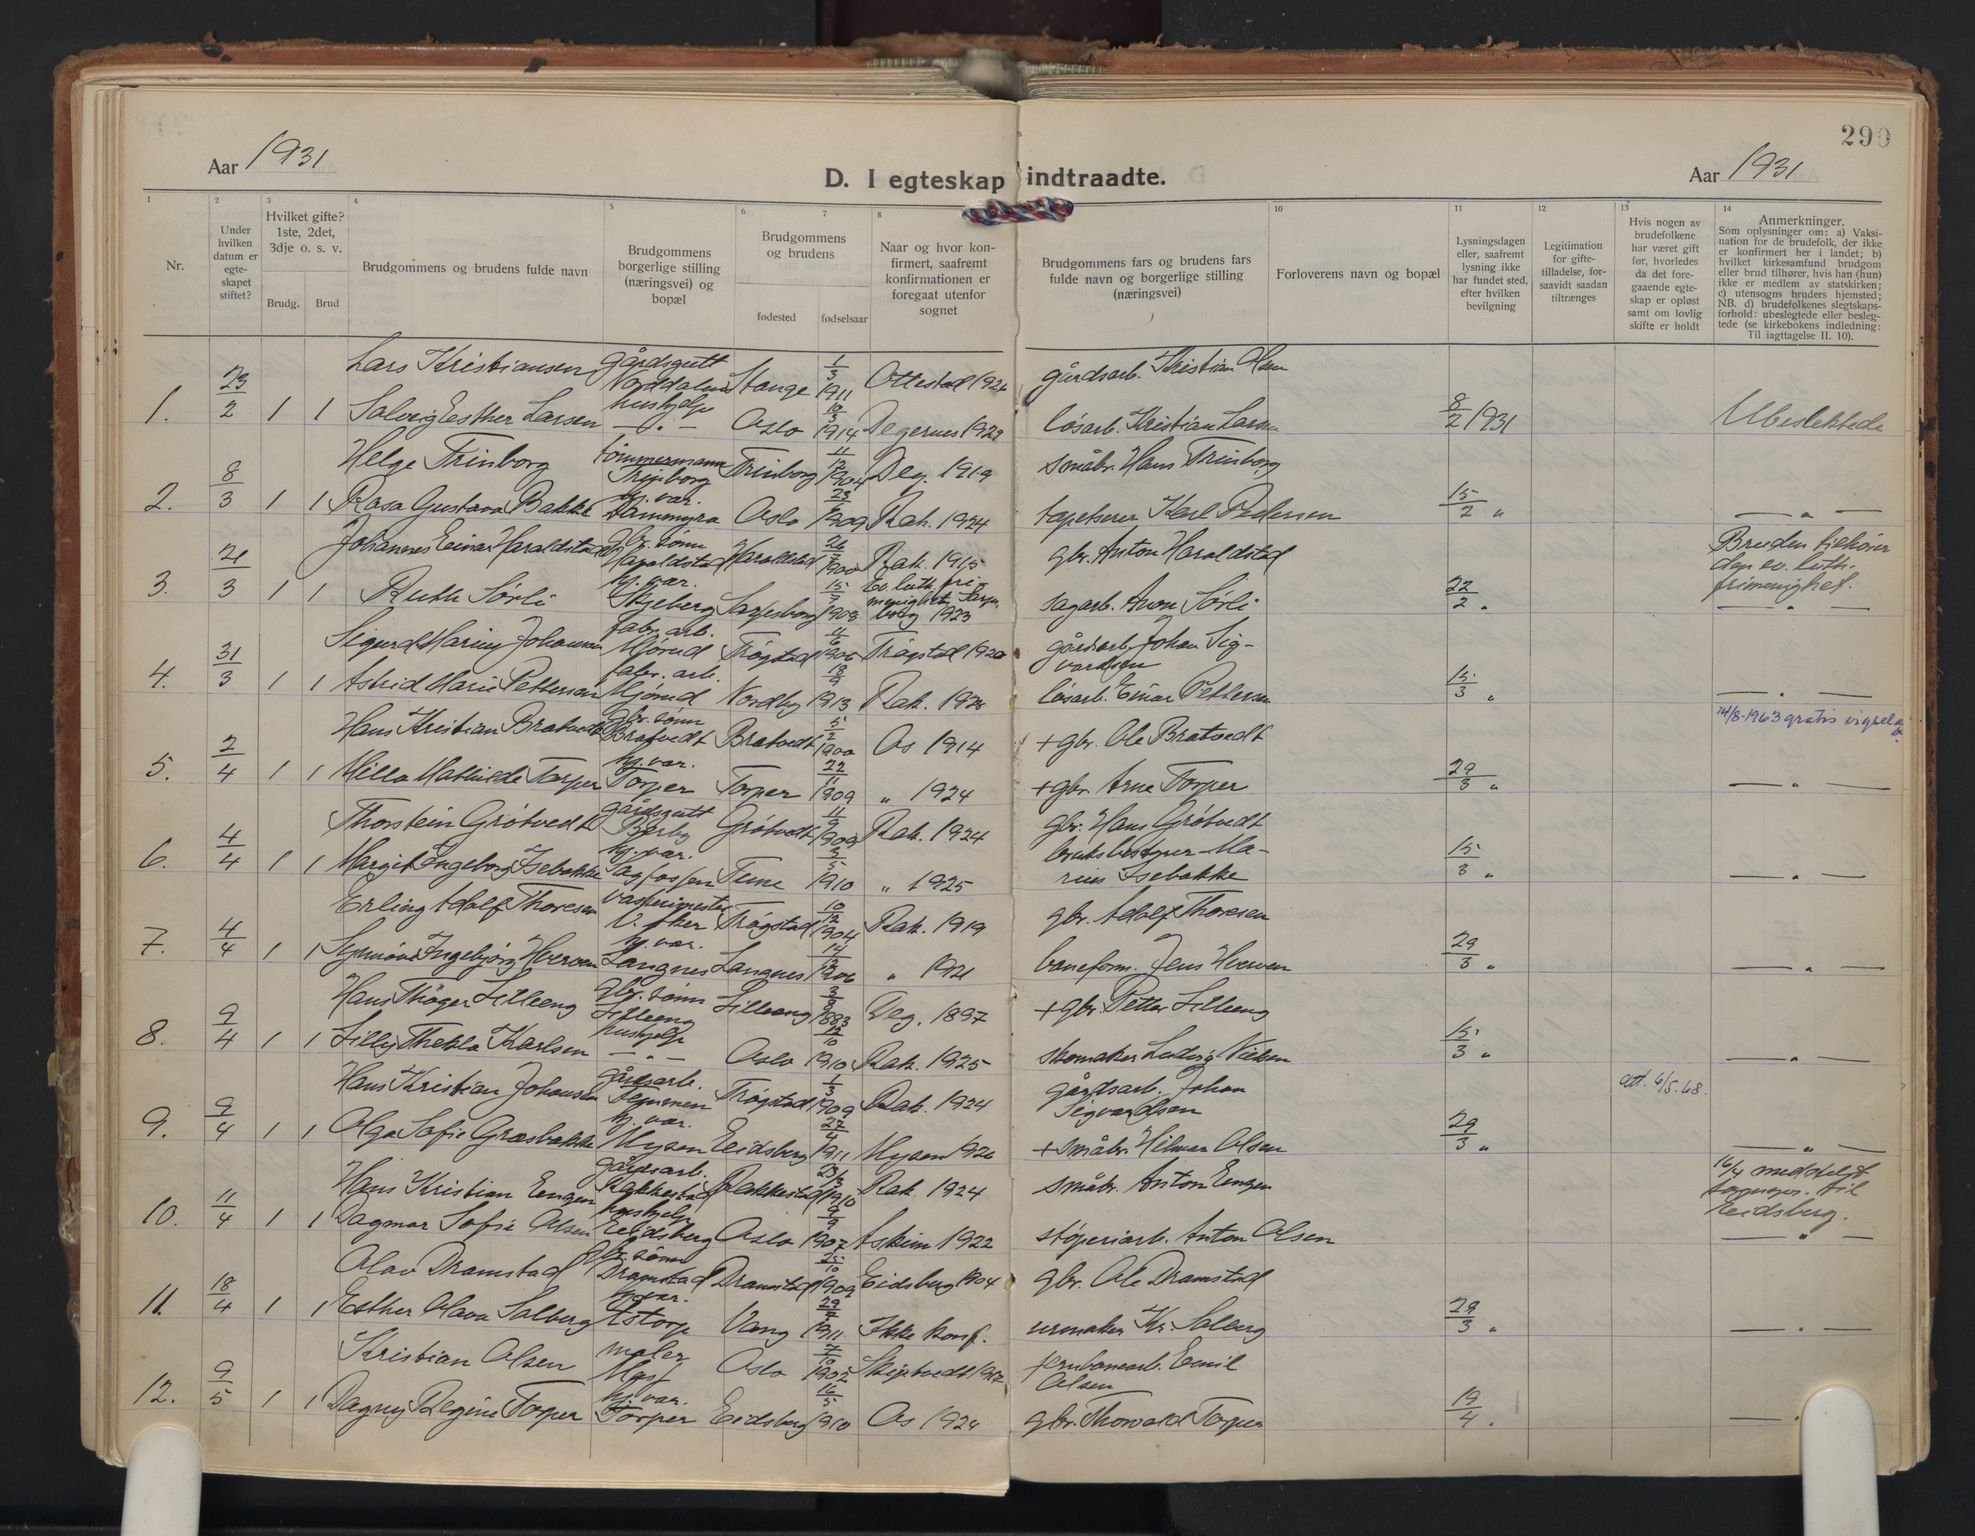 290
Aar 1931
D. I egteskap indtraadte.
Aar 1931
1 2 3 4 5 6 7 8 10 11 12 13 14
Nr.
Under hvilken datum er egte-skapet stiftet?
Hvilket gifte? 1ste, 2det, 3dje o. s. v.
Brudg. Brud
Brudgommens og brudens fulde navn
Brudgommens borgerlige stilling (næringsvei) og bopæl
Brudgommens og brudens
fødested fødselsaar
Naar og hvor kon-firmert, saafremt konfirmationen er foregaat utenfor sognet
Brudgommens fars og brudens fars fulde navn og borgerlige stilling (næringsvei)
Forloverens navn og bopæl
Lysningsdagen eller, saafremt lysning ikke har fundet sted, efter hvilken bevilgning
Legitimation for gifte-tilladelse, for-saavidt saadan tiltrænges
Hvis nogen av brudefolkene har været gift før, hvorledes da det fore-gaaende egte-skap er opløst samt om lovlig skifte er holdt
Anmerkninger.
Som oplysninger om: a) Vaksi-nation for de brudefolk, der ikke er konfirmert her i landet; b) hvilket kirkesamfund brudgom eller brud tilhører, hvis han (hun) ikke er medlem av statskirken; c) utensogns bruders hjemsted; NB. d) brudefolkenes slegtskaps-forhold: ubeslegtede eller besleg-tede (se kirkebokens indledning: Til iagttagelse II. 10).
Lars Kristiansen gårdsgutt Norddalen Stange 1/3 1911 Ottestad 1926 gårdsarb. Kristian Olsen
1. 23/2 1 1 Solveig Esther Larsen hushjelp — " — Oslo 10/3 1914 Degernes 1929 løsarb. Kristian Larsen 8/2 1931 Ubeslektede
Helge Trinborg tømmermann Trinborg Trinborg 11/12 1904 Deg. 1919 småbr. Hans Trinborg
2. 8/3 1 1 Rosa Gustava Bakke hj. vær. Dammyra Oslo 23/ 1909 Rak. 1924 tapetserer Karl Pedersen 15/2 " — " —
Johannes Einar Haraldstad gbr. sønn Haraldstad Haraldstad 26/7 1900 Rak. 1915 gbr. Anton Haraldstad Bruden tilhører den ev. luth. frimenighet.
3. 21/3 1 1 Ruth Sørli hj. vær. Skjeberg Sarpsborg 15/7 1908 Ev. luth. fri-menighet, Sarps-borg 1923 sagarb. Aron Sørli 22/2 " — " —
Sigurd Marius Johansen fabr. arb. Mjørud Trøgstad 11/6 1906 Trøgstad 1920 gårdsarb. Johan Sig-vardsen
4. 31/3 1 1 Astrid Marie Pettersen fabr. arb. Mjørud Nordby 18/9 1913 Rak. 1928 løsarb. Einar Pettersen 15/3 " — " —
Hans Kristian Bratvedt gbr. sønn Bratvedt Bratvedt 5/2 1900 Os 1914 + gbr. Ole Bratvedt 14/8-1963 gratis vigselatt.
5. 2/4 1 1 Milla Mathilde Torper hj. vær. Torper Torper 22/11 1909 " 1924 + gbr. Arne Torper 29/3 " — " —
Thorstein Grøtvedt gårdsgutt Berby Grøtvedt 11/9 1909 Rak. 1924 gbr. Hans Grøtvedt
6. 4/4 1 1 Margit Ingeborg Isebakke hj. vær. Sagfossen Tune 3/5 1910 " 1925 bruksbestyrer Ma-rius Isebakke 15/3 " — " —
Erling Adolf Thoresen V. Aker Trøgstad 10/12 1904 Rak. 1919 gbr. Adolf Thoresen
7. 4/4 1 1 Synnøve Ingebjørg Hverven hj. vær. Langnes Langnes 14/12 1906 " 1921 baneform. Jens Hverven 29/3 " — " —
Hans Thøger Lilleeng gbr. sønn Lilleeng Lilleeng 3/3 1883 Deg. 1897 + gbr. Petter Lilleeng
8. 9/4 1 1 Lilly Thekla Karlsen hushjelp — " — Oslo 12/10 1910 Rak. 1925 skomaker Ludvig Nielsen 15/3 " — " —
Hans Kristian Johansen gårdsarb. Trøgstad 1/3 1909 Rak. 1924 gårdsarb. Johan Sigvardsen att. 6/5.68.
9. 9/4 1 1 Olga Sofie Græsbakke hj. vær. Mysen Eidsberg 27/4 1911 Mysen 1926 + småbr. Hilmar Olsen 29/3 " — " —
Hans Kristian Engen gårdsarb. Rakkestad Rakkestad 23/3 1910 Rak. 1924 småbr. Anton Engen 16/4 meddelt sogнepr. til Eidsberg.
10. 11/4 1 1 Dagmar Sofie Olsen hushjelp Eidsberg Oslo 9/9 1907 Askim 1922 støperiarb. Anton Olsen — " —
Olav Dramstad gbr. sønn Dramstad Dramstad 25/10 1909 Eidsberg 1904 gbr. Ole Dramstad
11. 18/4 1 1 Esther Olava Solberg hj. vær. Vang 29/ 1911 Ikke konf. urmaker Kr. Solberg 29/3 " — " —
Kristian Olsen maler Oslo 7/10 1902 Skiptvedt 1917 jernbanearb. Emil Olsen
12. 9/5 1 1 Dagny Regine Torper hj. vær. Torper Eidsberg 16/5 1910 Os 1924 gbr. Thorvald Torper 19/4 " — "